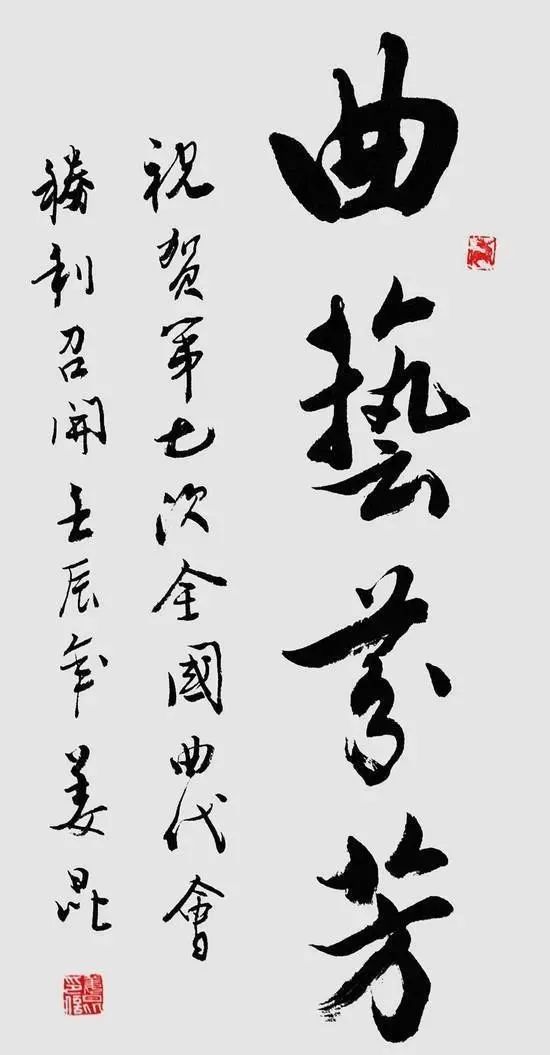 曲藝芬芳
祝贺第七次全國曲代會
勝利召開壬辰年姜昆